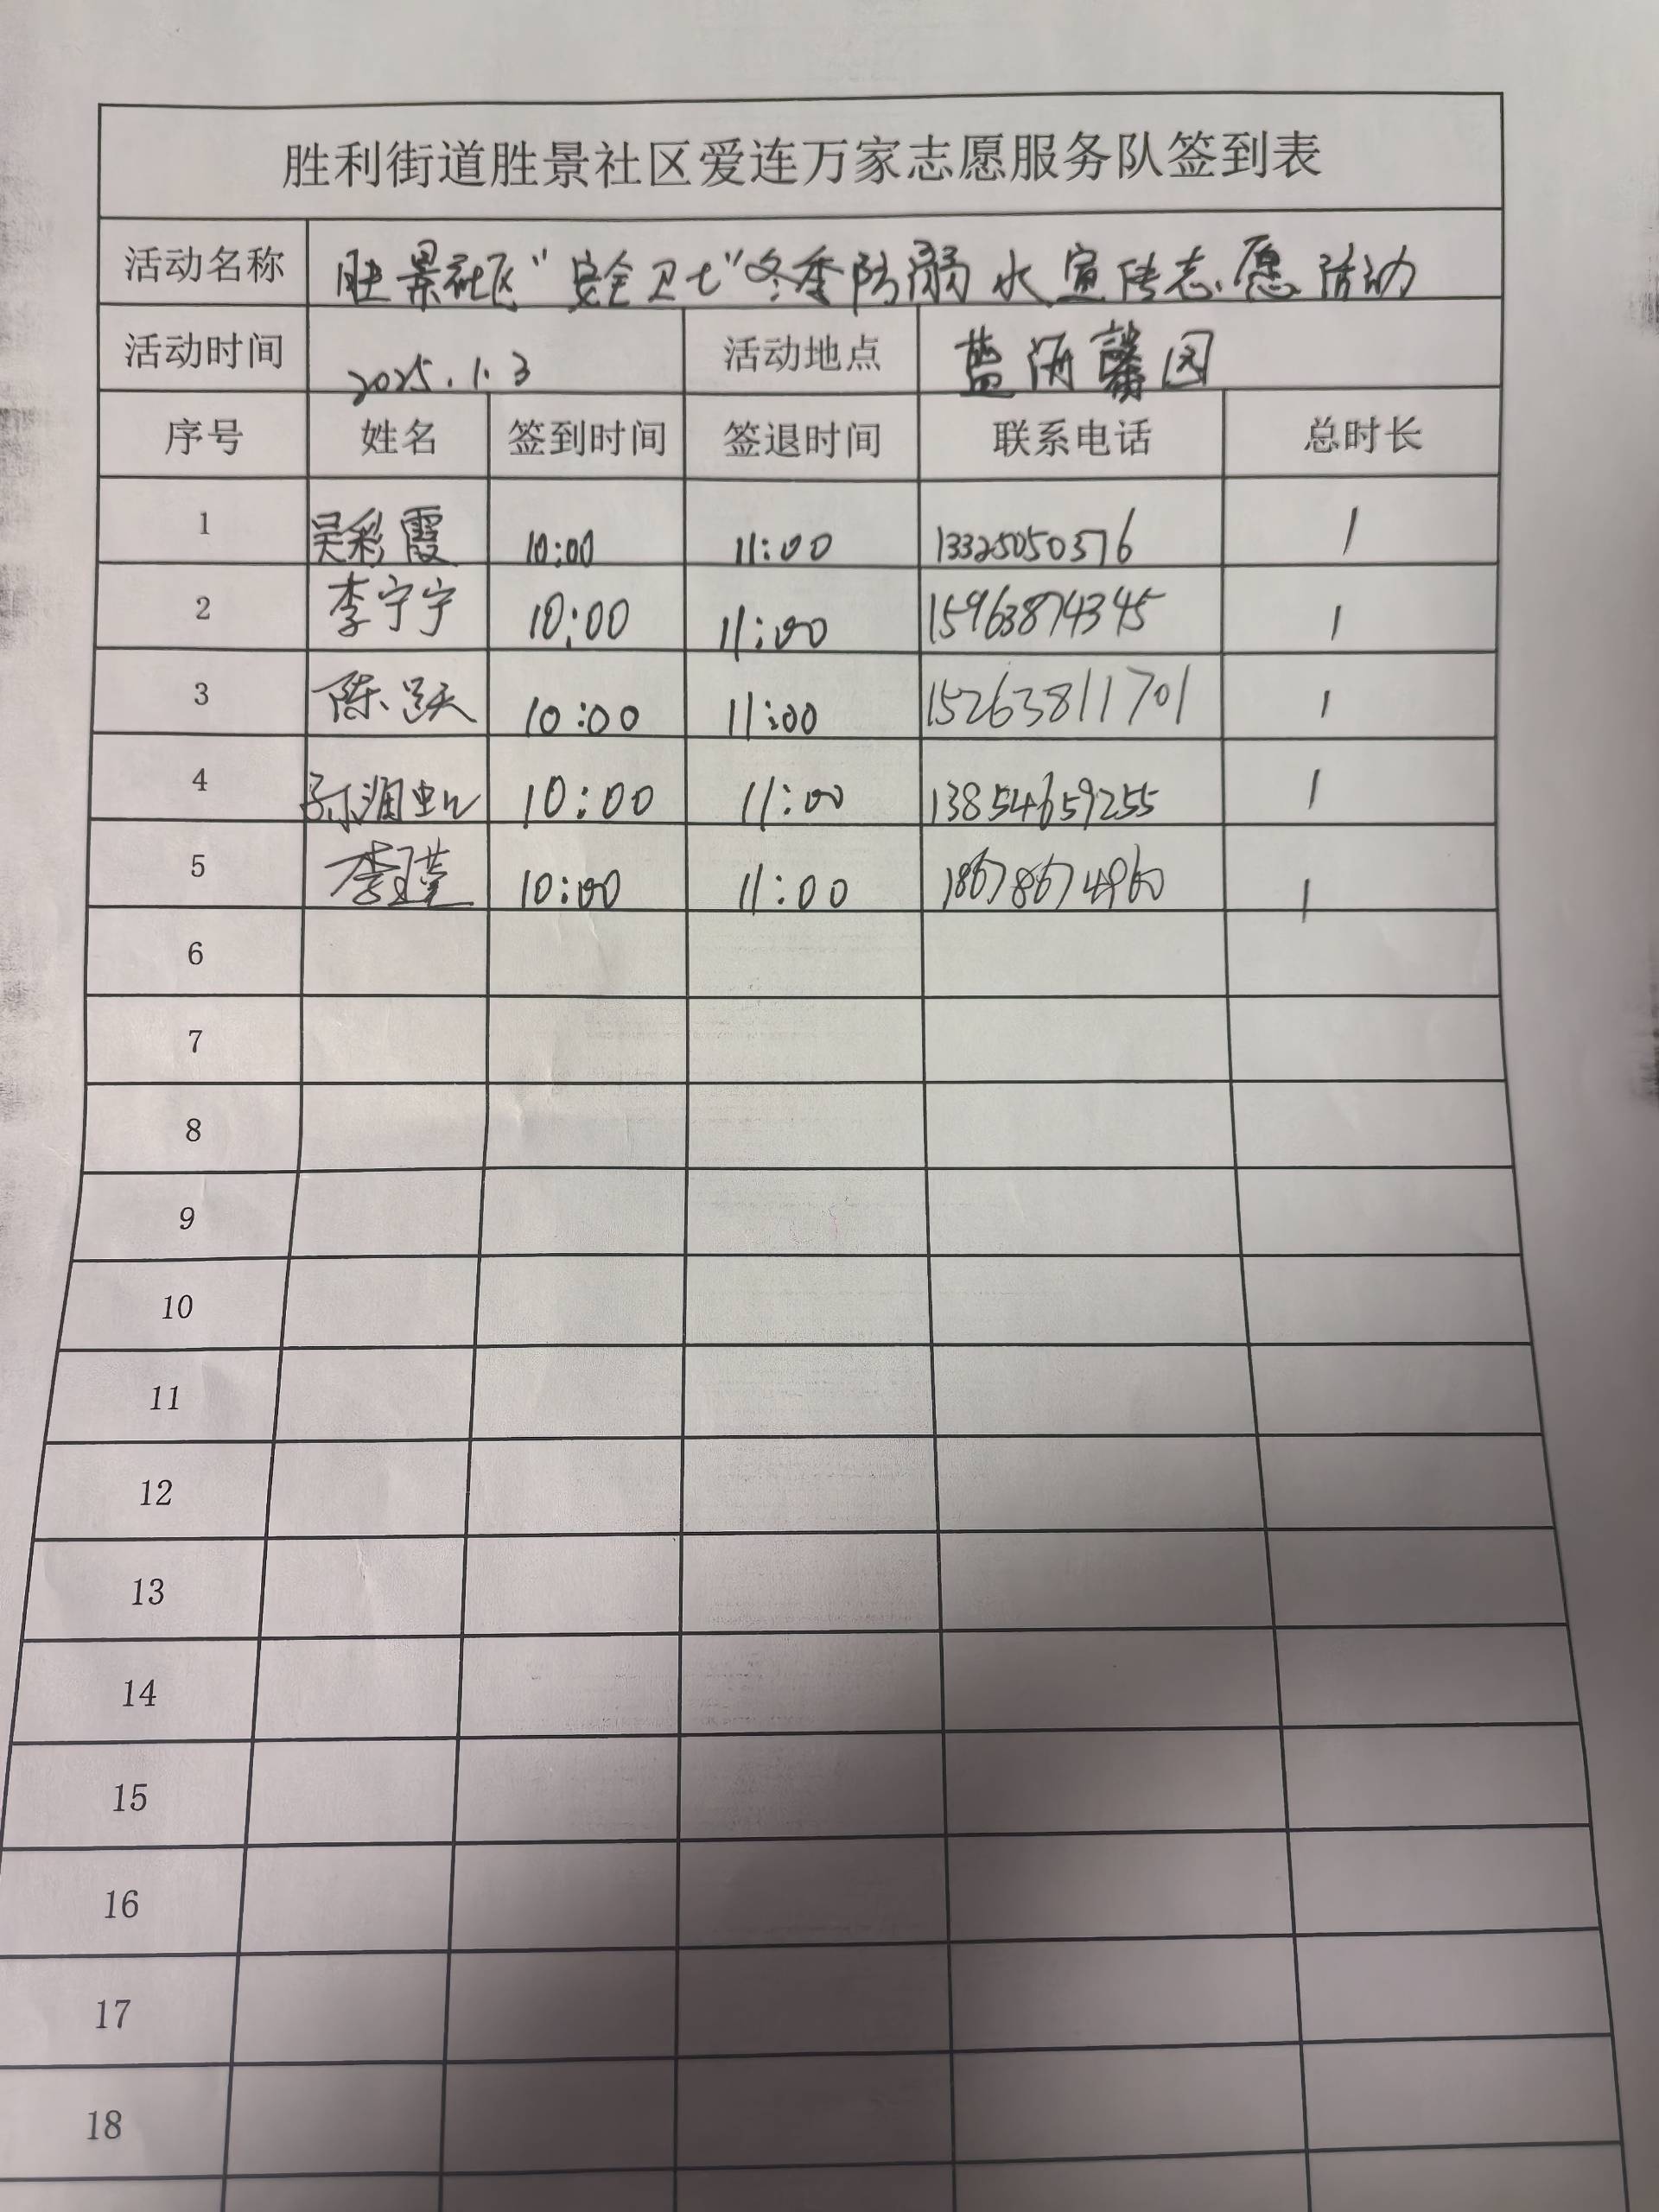 胜利街道胜景社区爱连万家志愿服务队签到表
活动名称 胜景社区“安全卫士”冬季防溺水宣传志愿活动
活动时间 2025.1.3 活动地点 蓝海馨园
序号 姓名 签到时间 签退时间 联系电话 总时长
1 吴彩霞 10:00 11:00 13325050376 1
2 李宁宁 10:00 11:00 15963874345 1
3 陈跃 10:00 11:00 15263811701 1
4 孙润虹 10:00 11:00 13854659255 1
5 李瑾 10:00 11:00 18678674960 1
6
7
8
9
10
11
12
13
14
15
16
17
18